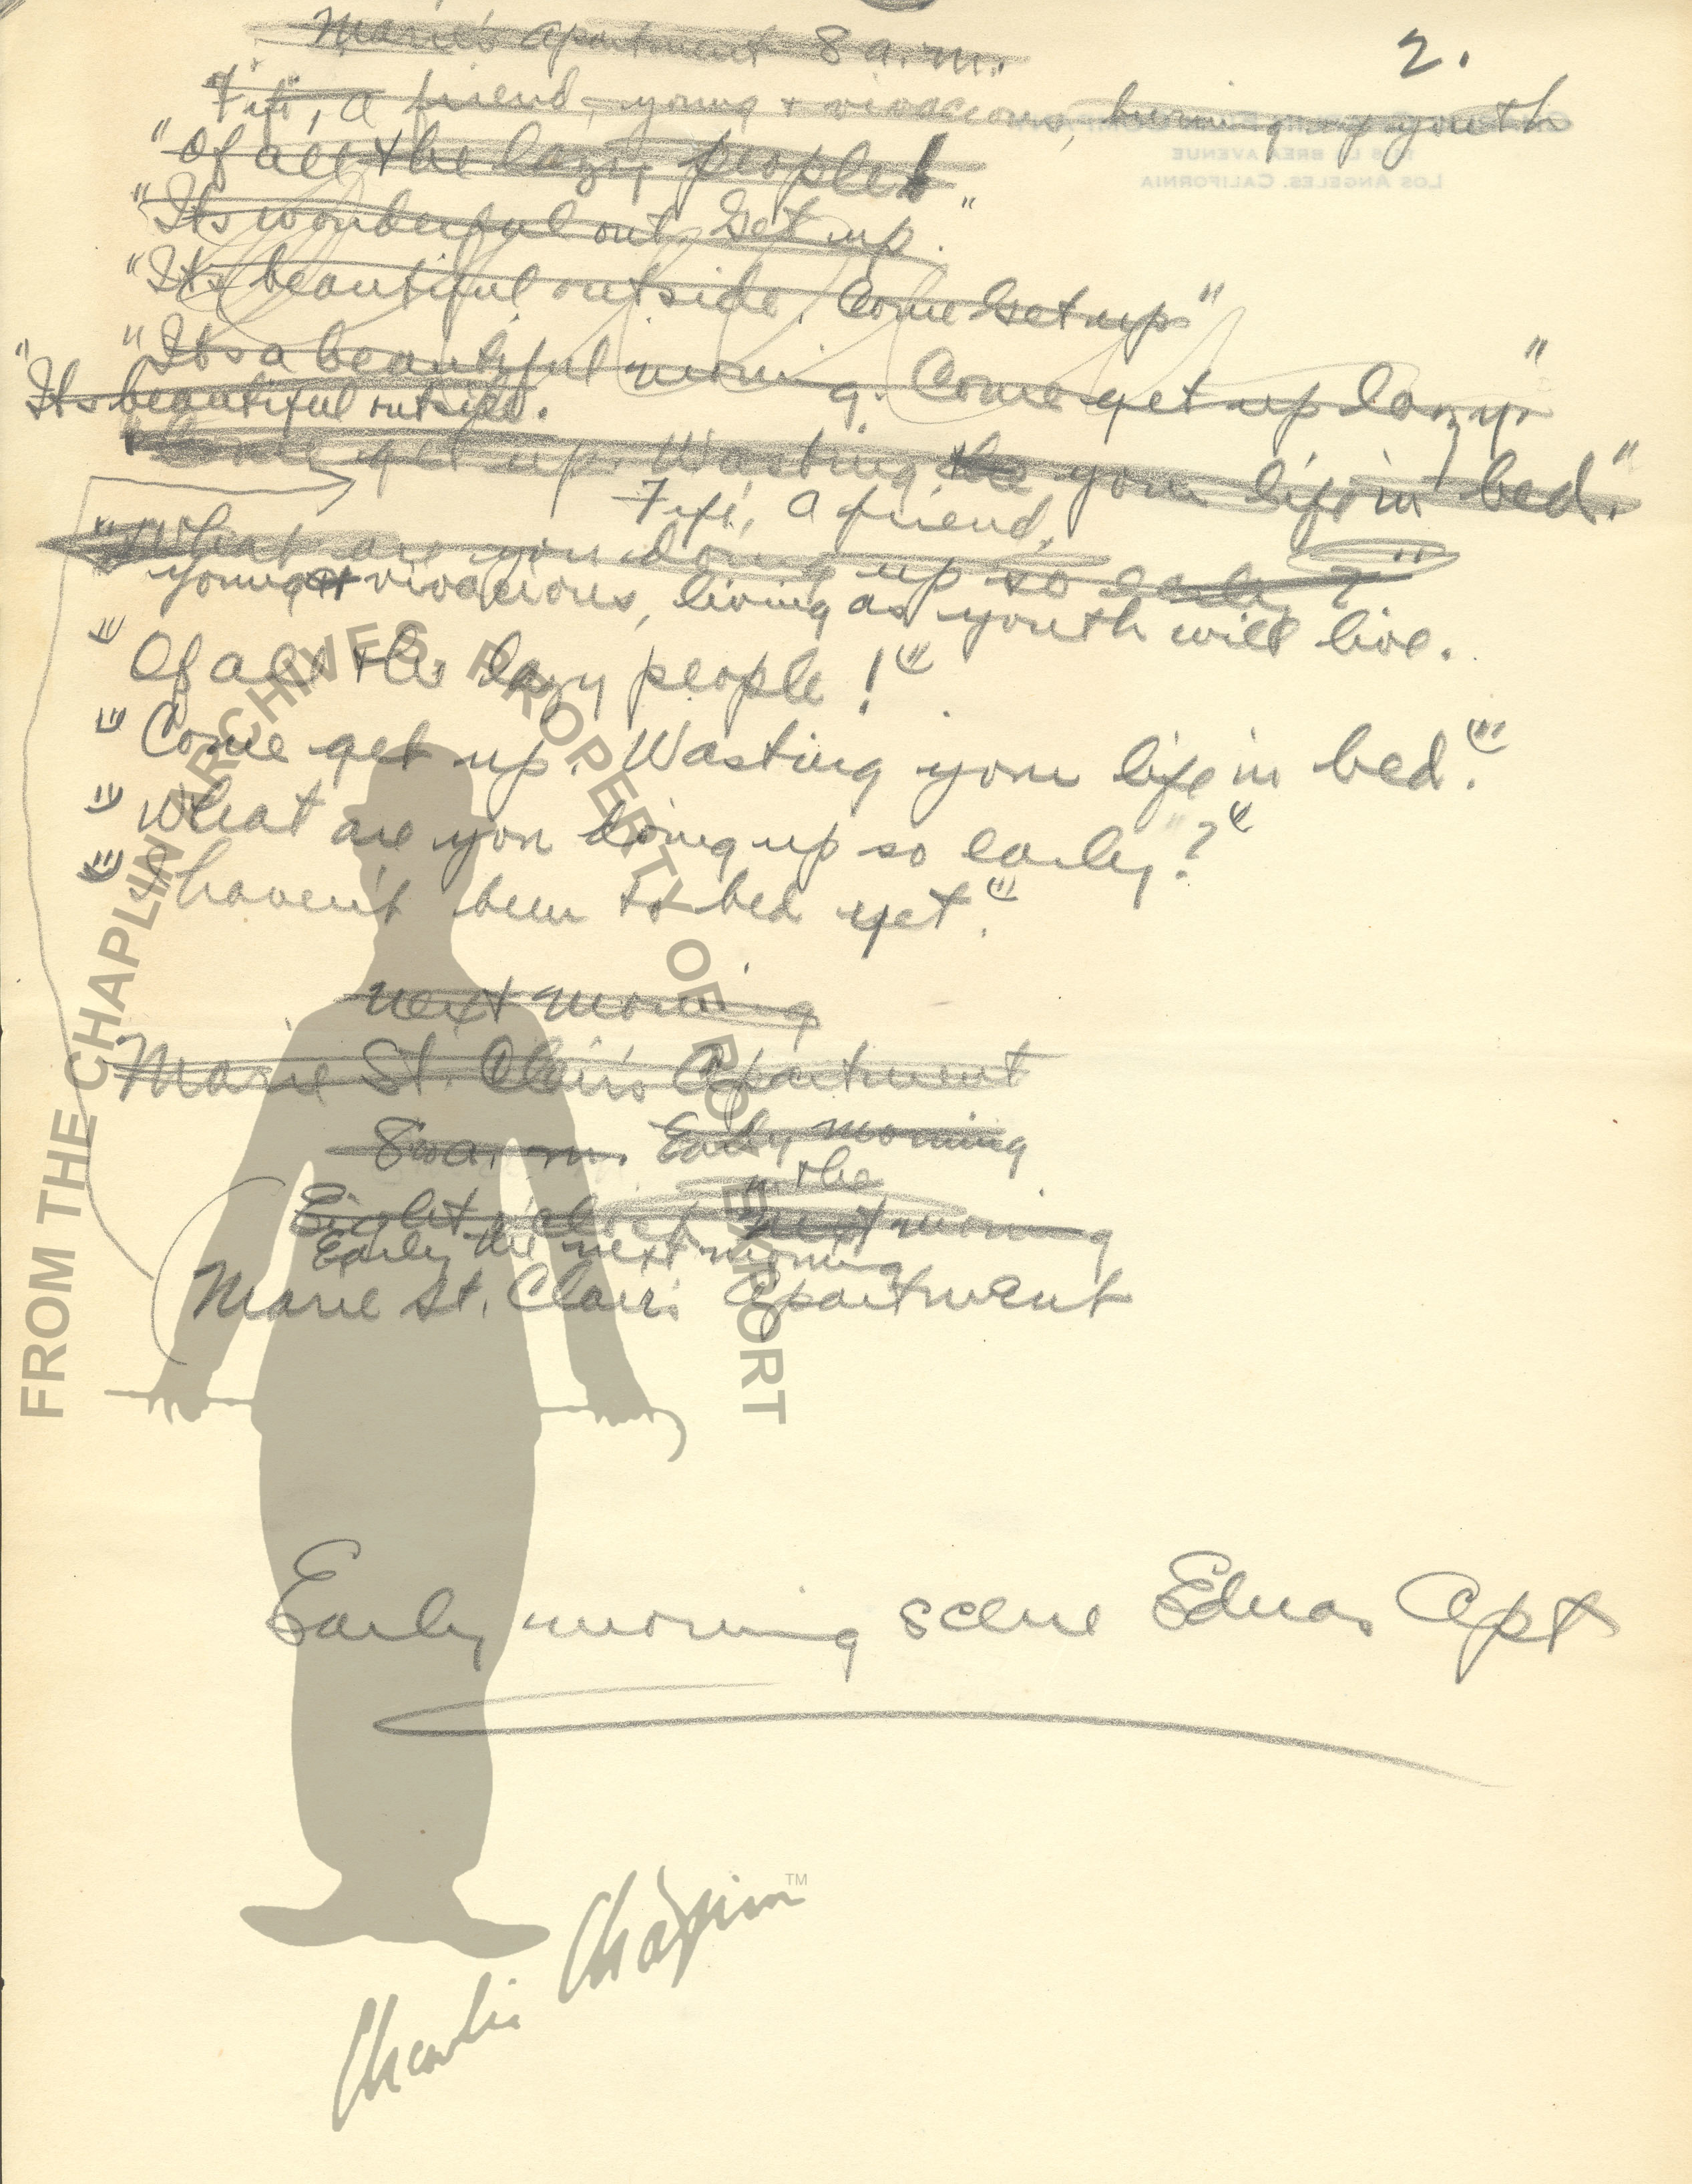 Marie's apartment 8 a.m.
2.
Fifi, a friend, young + vivacious, burning up youth
LA BREA AVENUE
LOS ANGELES, CALIFORNIA
"Of all the lazy people!"
"Its wonderful out. Get up."
"Its beautiful outside. Come Get up"
"Its a beautiful morning. Come get up lazy."
"Its beautiful outside.
"Come get up. Wasting your life in bed."
Fifi, a friend,
"What are you doing up so early?"
young + vivacious, living as youth will live.
"Of all the lazy people!"
"Come get up. Wasting your life in bed."
"What are you doing up so early?"
"I haven't been to bed yet."
next morning
Marie St. Clair's Apartment
8 a. m. Early morning
the
Eight o'clock next morning
Early the next morning
Marie St. Clair's Apartment
Early morning scene Ednas Apt
FROM THE CHAPLIN ARCHIVES PROPERTY OF ROY EXPORT
Charlie Chaplin™